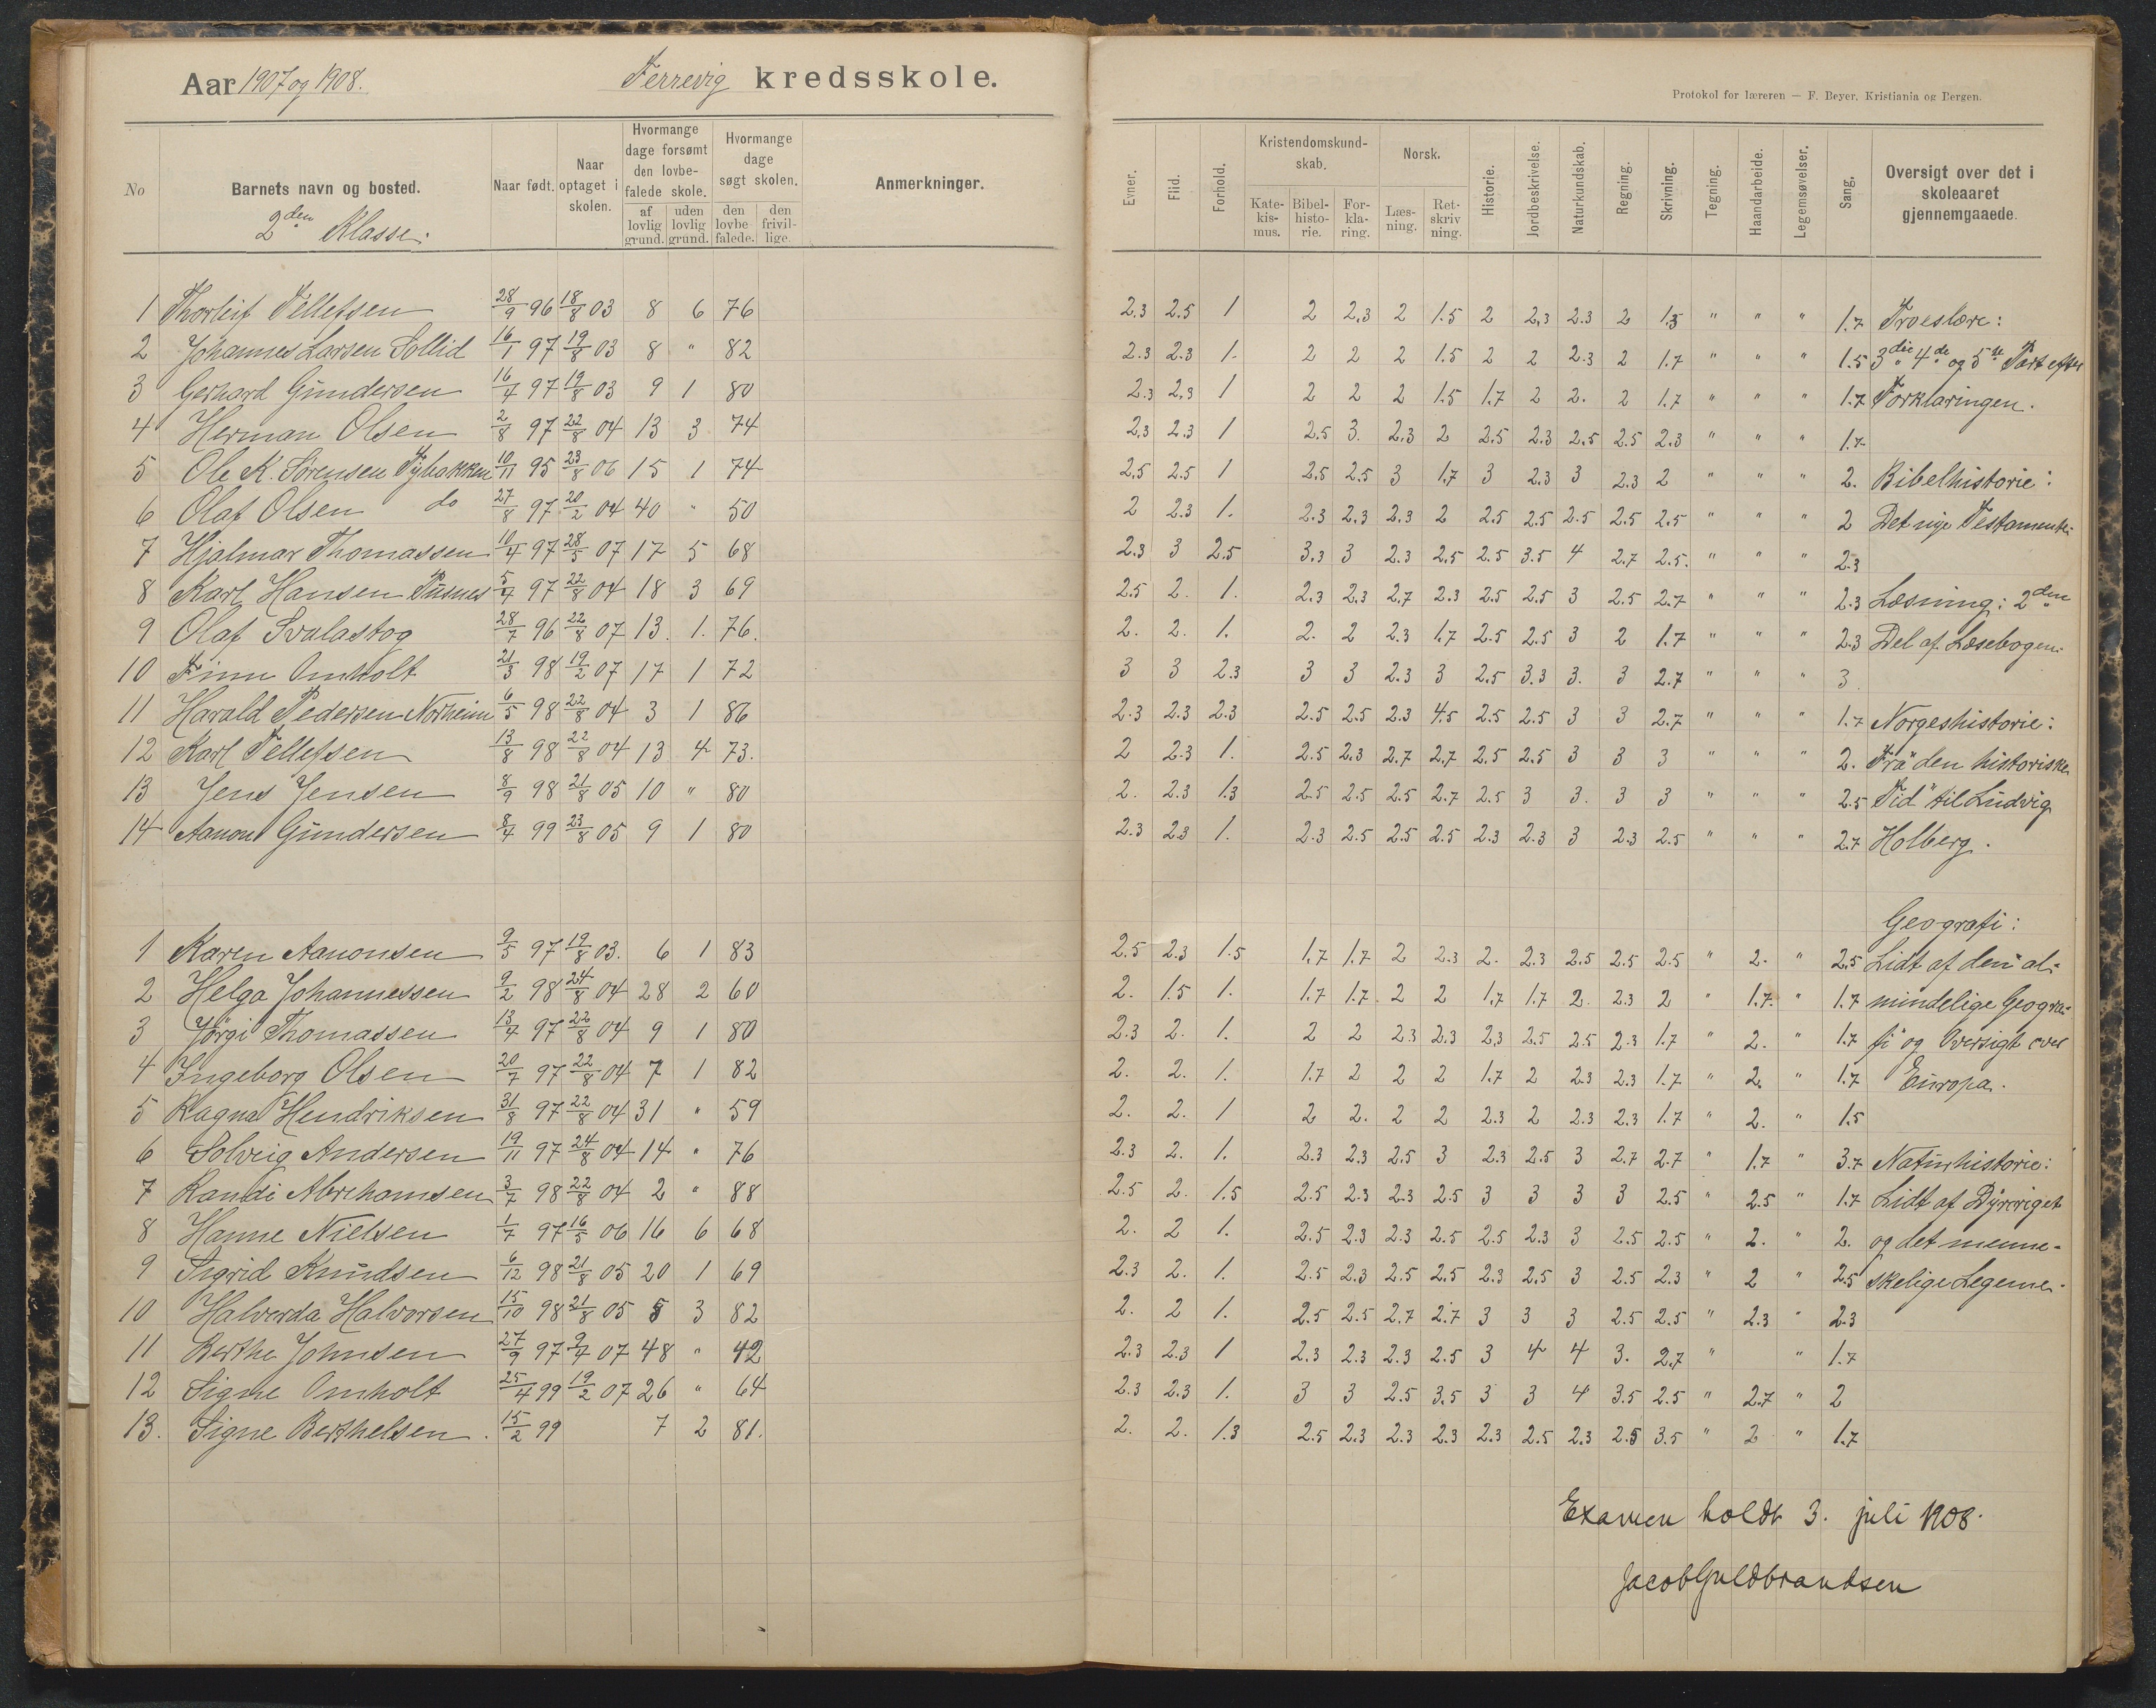 Aar 1907 og 1908. Terrevig kredsskole.
No
Barnets navn og bosted.
2den Klasse.
Naar født.
Naar optaget i skolen.
Hvormange dage forsømt den lovbefalede skole.
af lovlig grund.
uden lovlig grund.
Hvormange dage søgt skolen.
den lovbefalede.
den frivillige.
Anmerkninger.
1 Thorleif Tellefsen 28/9 96 18/8 03 8 6 76
2 Johannes Larsen Sollid 16/1 97 19/8 03 8 " 82
3 Gerhard Gundersen 16/4 97 19/8 03 9 1 80
4 Herman Olsen 2/8 97 22/8 04 13 3 74
5 Ole K. Sørensen 10/11 95 23/8 06 15 1 74
6 Olaf Olsen do 27/8 97 20/2 04 40 " 50
7 Hjalmar Thomassen 10/4 97 28/5 07 17 5 68
8 Karl Hansen Pusnes 5/4 97 22/8 04 18 3 69
9 Olaf Svalastog 28/7 96 22/8 07 13. 1. 76.
10 Finn Omholt 21/3 98 19/2 07 17 1 72
11 Harald Pedersen Norheim 6/5 98 22/8 04 3 1 86
12 Karl Tellefsen 13/8 98 22/8 04 13 4 73.
13 Jens Jensen 8/9 98 21/8 05 10 " 80
14 Aanon Gundersen 8/4 99 23/8 05 9 1 80
1 Karen Aanonsen 9/5 97 19/8 03. 6 1 83
2 Helga Johannessen 9/2 98 24/8 04 28 2 60
3 Jørgi Thomassen 13/4 97 22/8 04 9 1 80
4 Ingeborg Olsen 20/7 97 22/8 04 7 1 82
5 Ragna Hendriksen 31/8 97 22/8 04 31 " 59
6 Solveig Andersen 19/11 97 24/8 04 14 " 76
7 Randi Abrahamsen 3/7 98 22/8 04 2 " 88
8 Hanne Nielsen 1/7 97 16/5 06 16 6 68
9 Sigrid Knudsen 6/12 98 21/8 05 20 1 69
10 Halverda Halvorsen 15/10 98 21/8 05 5 3 82
11 Berthe Johnsen 27/9 97 9/4 07 48 " 42
12 Signe Omholt 25/4 99 19/2 07 26 " 64
13. Signe Berthelsen. 15/2 99 7 2 81.
Protokol for læreren — F. Beyer. Kristiania og Bergen.
Evner.
Flid.
Forhold.
Kristendomskundskab.
Katekismus.
Bibelhistorie.
Forklaring.
Norsk.
Læsning.
Retskrivning.
Historie.
Jordbeskrivelse.
Naturkundskab.
Regning.
Skrivning.
Tegning.
Haandarbeide.
Legemsøvelser.
Sang.
Oversigt over det i skoleaaret gjennemgaaede.
2.3 2.5 1 2 2.3 2 1.5 2 2.3 2.3 2 1.5 " " " 1.7 Troeslære:
2.3 2.3 1. 2 2 2 1.5 2 2 2.3 2 1.7 " " " 1.5 3die 4de og 5te Part efter
2.3 2.3 1 2 2 2 1.5 1.7 2 2. 2 1.7 " " " 1.7 Forklaringen.
2.3 2.3 1 2.5 3. 2.3 2 2.5 2.3 2.5 2.5 2.3 " " " 1.7
2.5 2.5 1 2.5 2.5 3 1.7 3 2.3 3 2.3 2 " " " 2. Bibelhistorie:
2 2.3 1. 2.3 2.3 2.3 2 2.5 2.5 2.5 2.5 2.5 " " " 2 Det nye Testamente.
2.3 3 2.5 3.3 3 2.3 2.5 2.5 3.5 4 2.7 2.5. " " " 2.3
2.5 2. 1. 2.3 2.3 2.7 2.3 2.5 2.5 3 2.5 2.7 " " " 2.3 Læsning: 2den
2. 2. 1. 2. 2 2.3 1.7 2.5 2.5 3 2 1.7 " " " 2.3 Del af Læsebogen.
3 3 2.3 3 3 2.3 3 2.5 3.3 3. 3 2.7 " " " 3
2.3 2.3 2.3 2.5 2.5 2.3 4.5 2.5 2.5 3 3 2.7 " " " 1.7 Norgeshistorie:
2 2.3 1. 2.5 2.3 2.7 2.7 2.5 2.5 3 3 3 " " " 2. Fra "den historiske
2. 2.3 1.3 2.5 2.5 2.5 2.7 2.5 3 3. 3 3 " " " 2.5 Tid" til Ludvig
2.3 2.3 1. 2.3 2.5 2.5 2.5 2.3 2.3 3 2.3 2.5 " " " 2.7 Holberg.
Geografi:
2.5 2.3 1.5 1.7 1.7 2 2.3 2. 2.3 2.5 2.5 2.5 " 2. " 2.5 Lidt af den "al-
2. 1.5 1. 1.7 1.7. 2 2 1.7 1.7 2. 2.3 2 " 1.7. " 1.7 mindelige Geogra-
2.3 2. 1. 2 2 2.3 2.3 2.3 2.5 2.5 2.3 1.7 " 2. " 1.7 fi" og Oversigt over
2. 2. 1. 1.7 2 2 2 1.7 2 2.3 2.3 1.7 " 2. " 1.7 Europa.
2. 2. 1 2 2. 2 2 2.3 2 2.3 2.3 1.7 " 2. " 1.5
2.3 2. 1. 2.3 2.3 2.5 3 2.3 2.5 3 2.7 2.7 " 1.7 " 3.7 Naturhistorie:
2.5 2. 1.5 2.5 2.3 2.3 2.5 3 3 3 3 2.5 " 2.5 " 1.7 Lidt af Dyreriget
2. 2 1. 2.5 2.3 2.3 2.5 2.5 2.3 3 2.5 2.5 " 2. " 2. og det menne-
2.3 2. 1. 2.5 2.3 2.5 2.5 2.3 2.5 3 2.5 2.3 " 2 " 2.5 skelige Legeme.
2. 2 1. 2.5 2.5 2.7 2.7 3 3 3 2.5 2.5 " 2.3 " 2.3
2.3 2.3 1 2.3 2.3 2.3 2.5 3 4 4 3. 2.7 " " 1.7
2.3 2.3 1. 3 3 2.5 3.5 3 3 4 3.5 2.5 " 2.7 " 2
2. 2. 1.3 2.5 2.3 2.3 2.3 2.3 2.5 2.3 2.5 3.5 " 2 " 1.7
Examen holdt 3. juli 1908.
Jacob Guldbrandsen